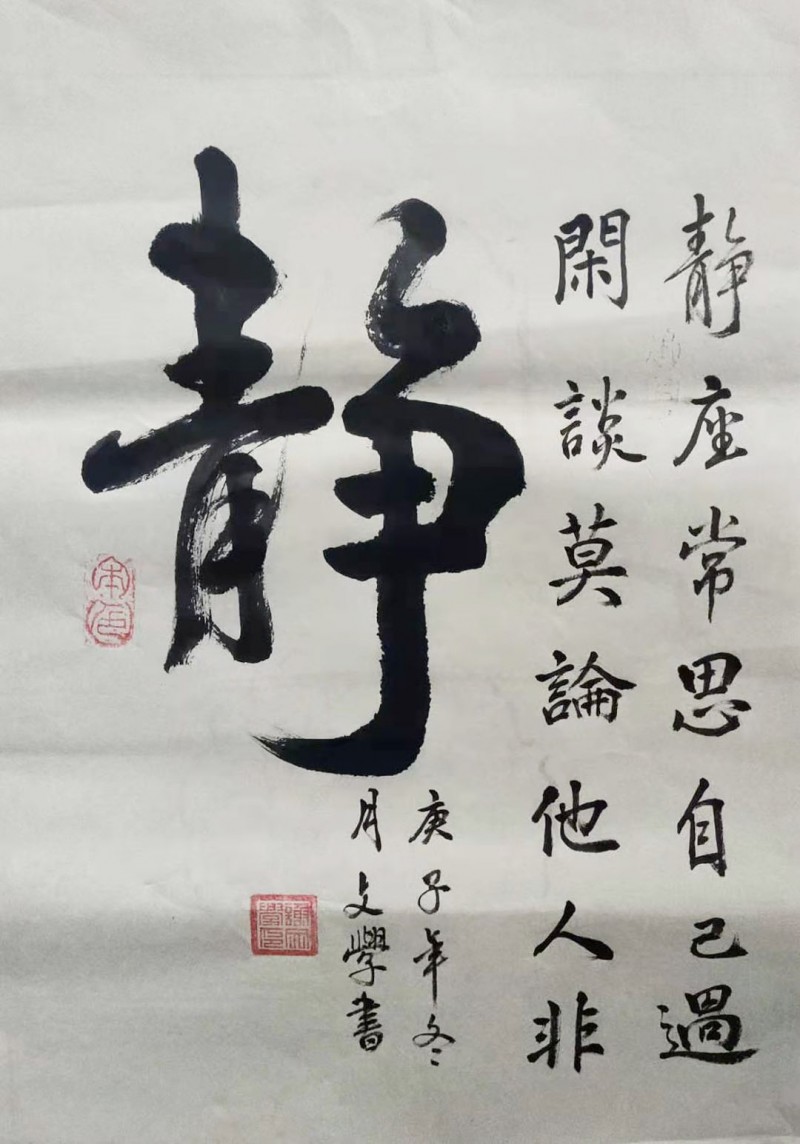 靜座常思自己過
閑談莫論他人非
靜
庚子年冬
月文學書
本色